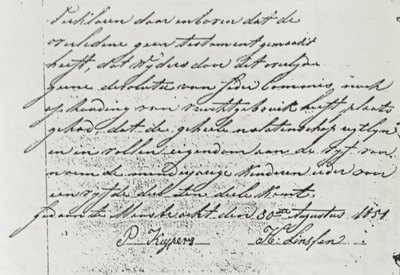 Verklaren daar enboven dat de
overledene geen testament gemaakt
heeft, dat wijders door dit overlyden
geene devolutie van fidei Commis, noch
ophouding van vruchtgebruik heeft plaats
gehad, dat de geheele nalatenschap
en in vollen eigendom aan de vyf
de minderjarige kinderen ieder voor
een vyfde deel ten deele komt.
Gedaan te Maastricht den 30sten Augustus 1851
P. Kuypers H. Linssen